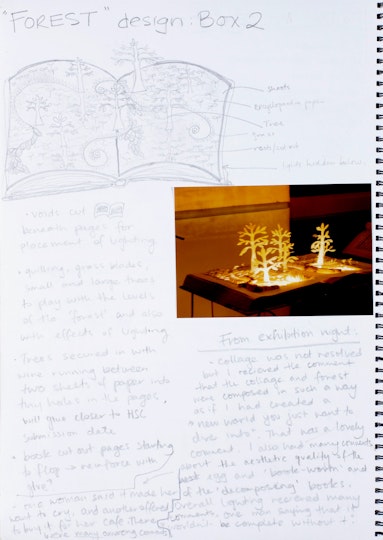 "FOREST" design: Box 2
Shoots
Tree
grass
lights hidden below
• voids cut
beneath pages for
placement of lighting
• quilling, grass blades,
small and large trees
to play with the levels
of the 'forest' and also
with effects of lighting
• Trees secured in with
wire running between
two sheets of paper into
tiny holes in the pages,
will glue closer to HSC
submission date
• book cut out pages starting
to flop → reinforce with
glue?
• one woman said it made her
want to cry, and another offered
to buy it for her cafe. There
were many amazing comments
From exhibition night:
• Collage was not resolved
but I recieved the comment
that the collage and forest
were composed in such a way
as if I had created a
"new world you just want to
dive into". That was a lovely
comment. I also had many comments
about the aesthetic quality of the
egg and 'book-worm' and
of the 'decomposing' books.
Overall lighting recieved many
comments, one even saying that it
wouldn't be complete without it.